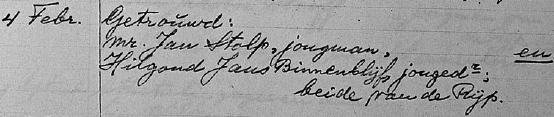 4 Febr. Getrouwd:
mr. Jan Stolp, jongman, en
Hilgond Jans Binnenblijf, jongedr;
beide van de Rijp.